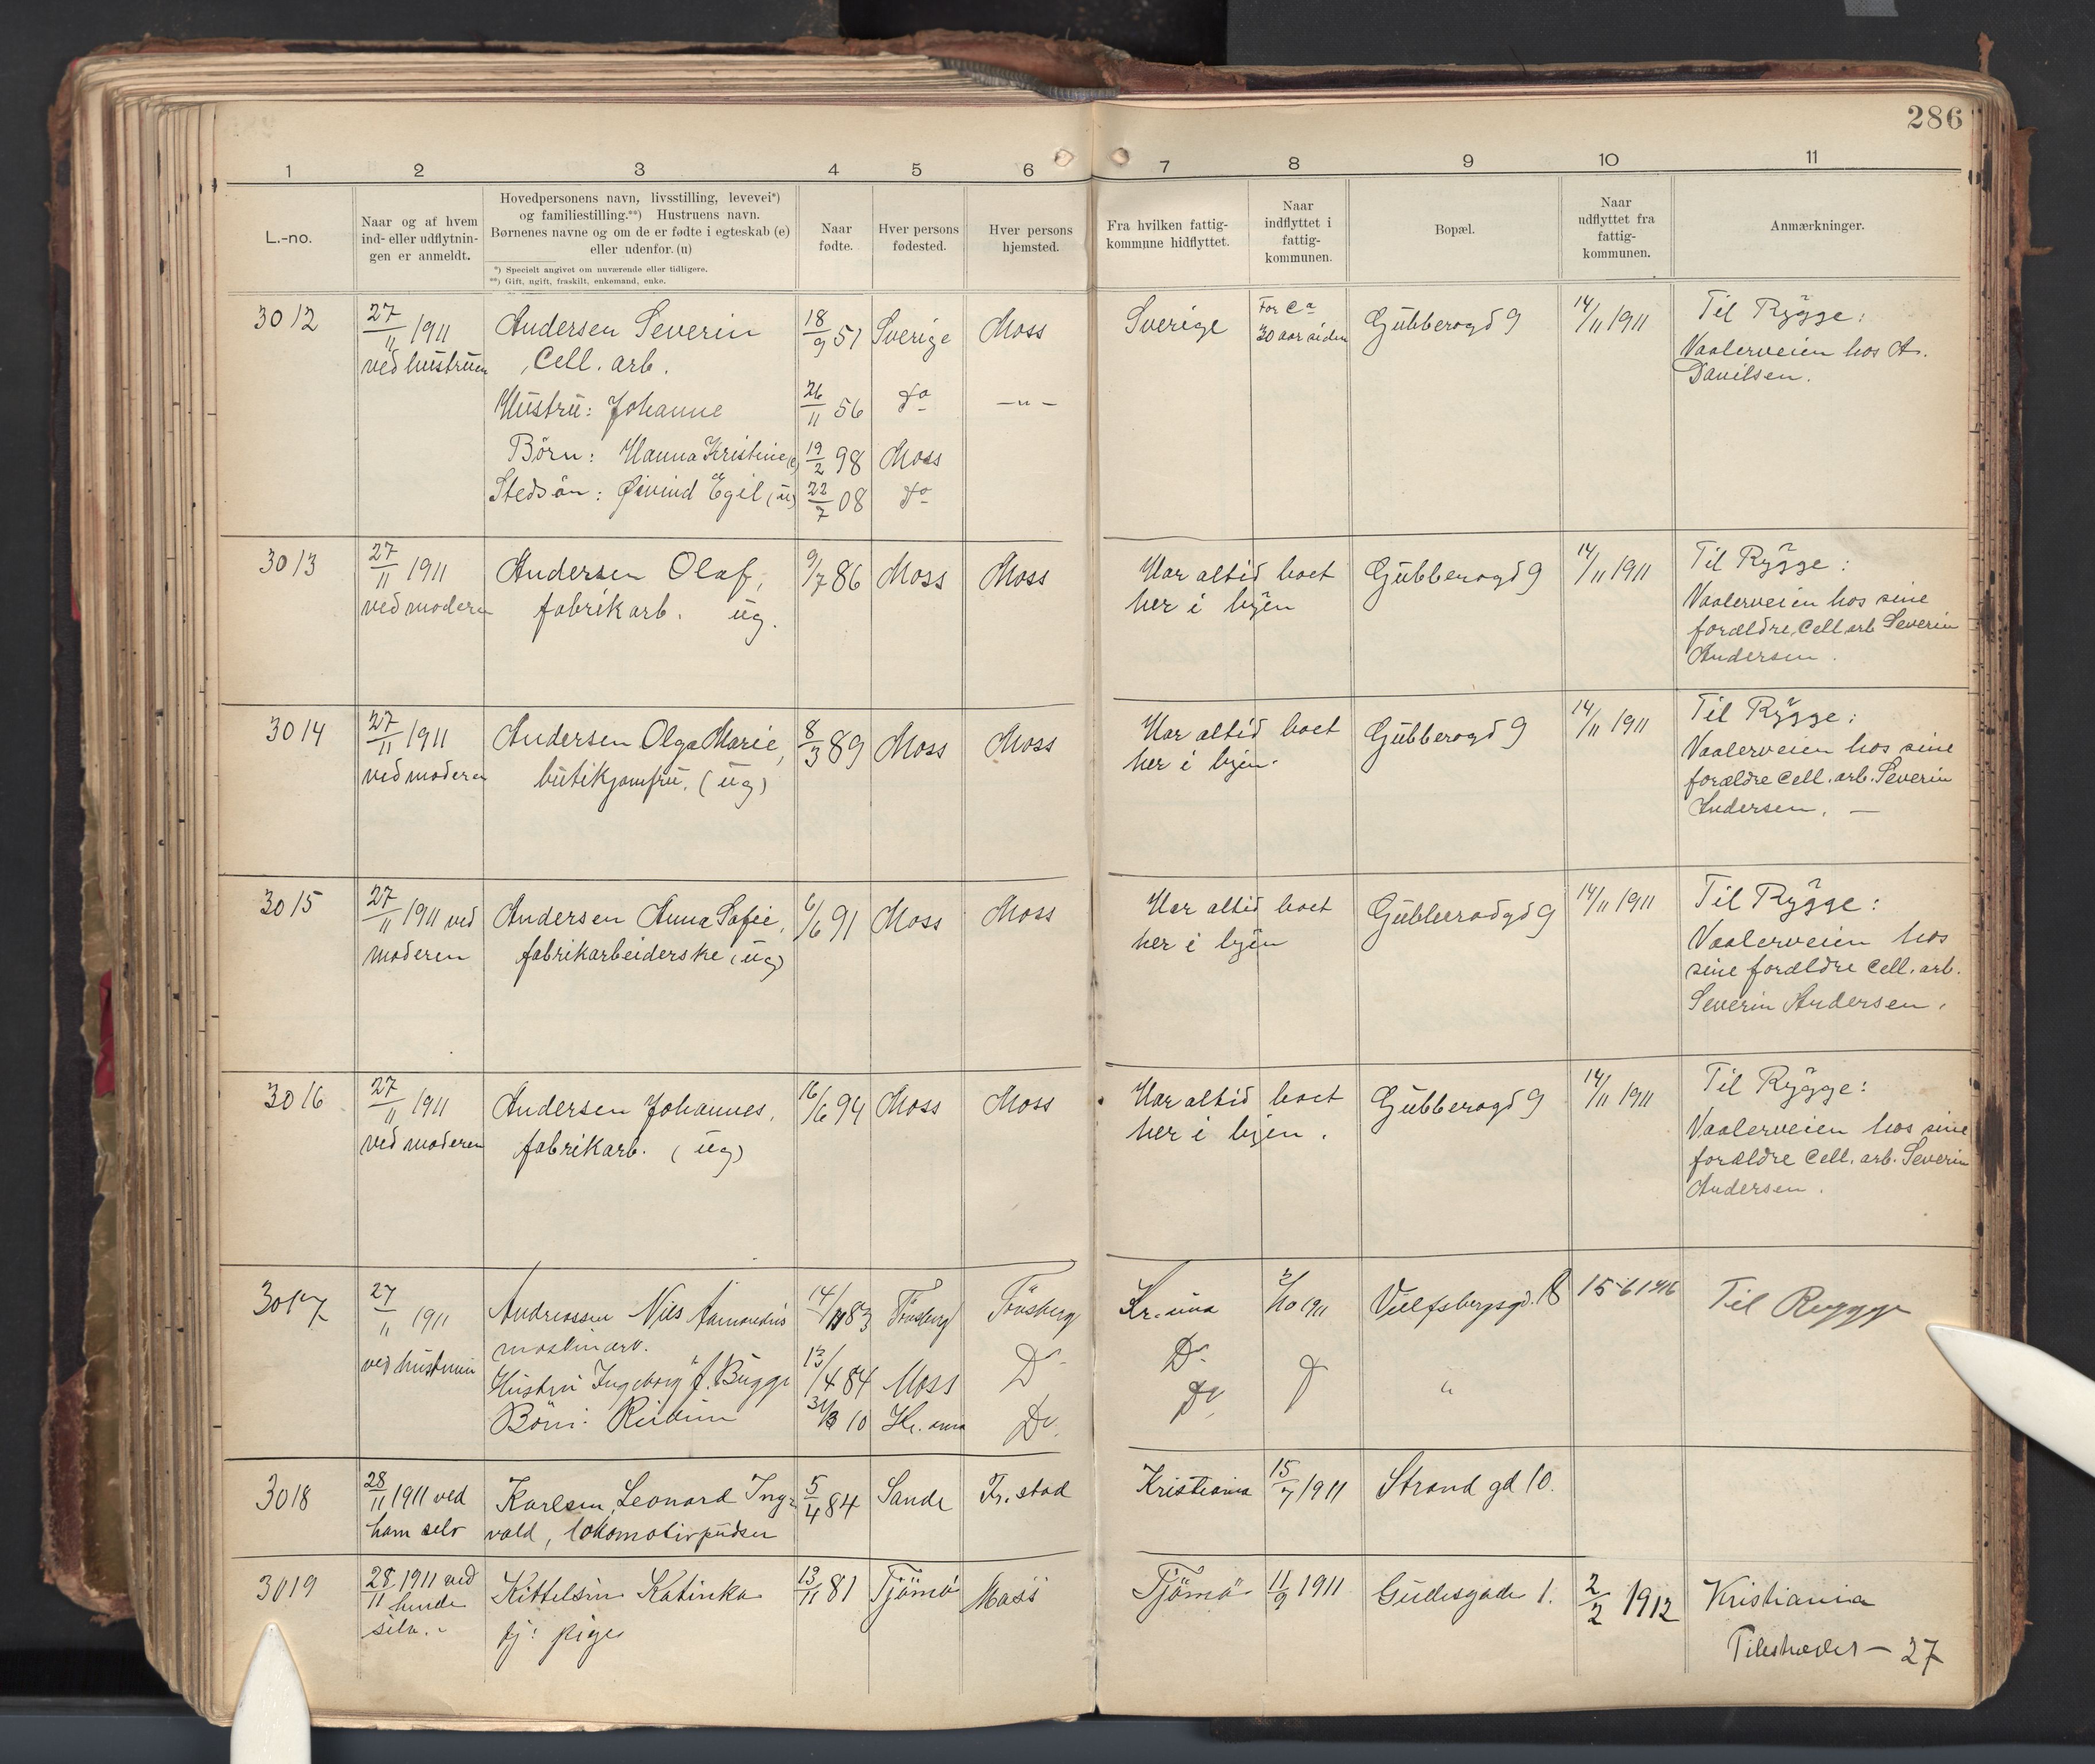 286
1 2 3 4 5 6 7 8 9 10 11
L.-no.
Naar og af hvem
ind- eller udflytnin-
gen er anmeldt.
Hovedpersonens navn, livsstilling, levevei*)
og familiestilling.**) Hustruens navn.
Børnenes navne og om de er fødte i egteskab (e)
eller udenfor. (u)
*) Specielt angivet om nuværende eller tidligere.
**) Gift, ugift, fraskilt, enkemand, enke.
Naar
fødte.
Hver persons
fødested.
Hver persons
hjemsted.
Fra hvilken fattig-
kommune hidflyttet.
Naar
indflyttet i
fattig-
kommunen.
Bopæl.
Naar
udflyttet fra
fattig-
kommunen.
Anmærkninger.
3012
27/11 1911
ved hustruen
Andersen Severin
Cell. arb.
18/9 51 Sverige Moss
Hustru: Johanne 26/11 56 do —"—
Børn: Hanna Kristine (e) 19/2 98 Moss
Stedsön: Øivind Egil (u) 22/7 08 do
Sverige
For ca
30 aar siden
Gubberogd 9
14/11 1911
Til Rygge:
Vaalerveien hos A.
Danilsen.
3013
27/11 1911
ved moderen
Andersen Olaf,
fabrikarb. ug.
9/7 86 Moss Moss
Har altid boet
her i byen
Gubberogd 9
14/11 1911
Til Rygge:
Vaalerveien hos sine
forældre, Cell arb Severin
Andersen.
3014
27/11 1911
ved moderen
Andersen Olga Marie,
butikjomfru. (ug)
8/3 89 Moss Moss
Har altid boet
her i byen.
Gubberogd 9
14/11 1911
Til Rygge:
Vaalerveien hos sine
forældre Cell. arb. Severin
Andersen. —
3015
27/11 1911 ved
moderen
Andersen Anna Sofie,
fabrikarbeiderske (ug)
6/6 91 Moss Moss
Har altid boet
her i byen
Gubberodgd 9
14/11 1911
Til Rygge:
Vaalerveien hos
sine forældre Cell. arb.
Severin Andersen.
3016
27/11 1911
ved moderen
Andersen Johannes,
fabrikarb. (ug)
16/6 94 Moss Moss
Har altid boet
her i byen.
Gubberogd 9
14/11 1911
Til Rygge:
Vaalerveien hos sine
forældre Cell. arb. Severin
Andersen.
3017
27/11 1911
ved hustruen
Andreassen Nils
maskinarb.
83 Tönsberg Tönsberg
Hustru Ingeborg f. Bugge
13/4 84 Moss Do
Börn: 10 Kr. ania Do
Kr. ania
2/10 1911
Vulfsbergsgd.
Til Rygge
Do
Do
"
3018
28/11 1911 ved
ham selv
Karlsen, Leonard Ing-
vald, lokomotivpudser
5/4 84 Sande Fr. stad
Kristiania
15/7 1911
Strand gd 10.
3019
28/11 1911 ved
hende
selv.
Kittelsen Katinka
tj: pige
13/11 81 Tjömö Moss
Tjömö
11/9 1911
Gudesgade 1.
2/2 1912
Kristiania
27